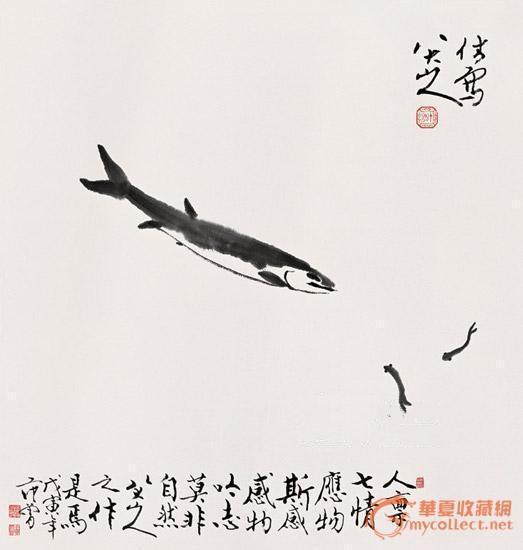 傳寫
八大山人
人禀
七情
應物
斯感
感物
吟志
莫非
自然
八大山人
之作
是焉
戊寅年
范曾
華夏收藏網
mycollect.net